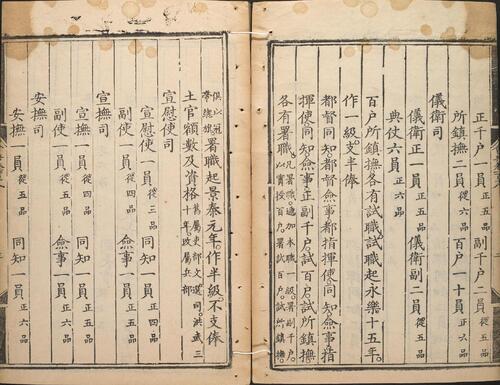 正千户一員正五品　副千户二員從五品
所鎮撫二員從六品　百户一十員正六品
儀衛司
儀衛正一員正五品　儀衛副二員從五品
典仗六員正六品
百户所鎮撫各有試職試職起永樂十五年
作一級支半俸
都督同知都督僉事都指揮使同知僉事指
揮使同知僉事正副千户試百户試所鎮撫
各有署職凡署職逓加本職一級署副千户以實授百户署試百户試所鎮撫
俱以冠帶總旗署職起景泰元年作半級不支俸
土官額數及資格舊屬吏部文選司洪武三十年改屬兵部
宣慰使司
宣慰使一員從三品　同知一員正四品
副使一員從四品　僉事一員正五品
宣撫司
宣撫一員從四品　同知一員正五品
副使一員從五品　僉事一員正六品
安撫司
安撫一員從五品　同知一員正六品